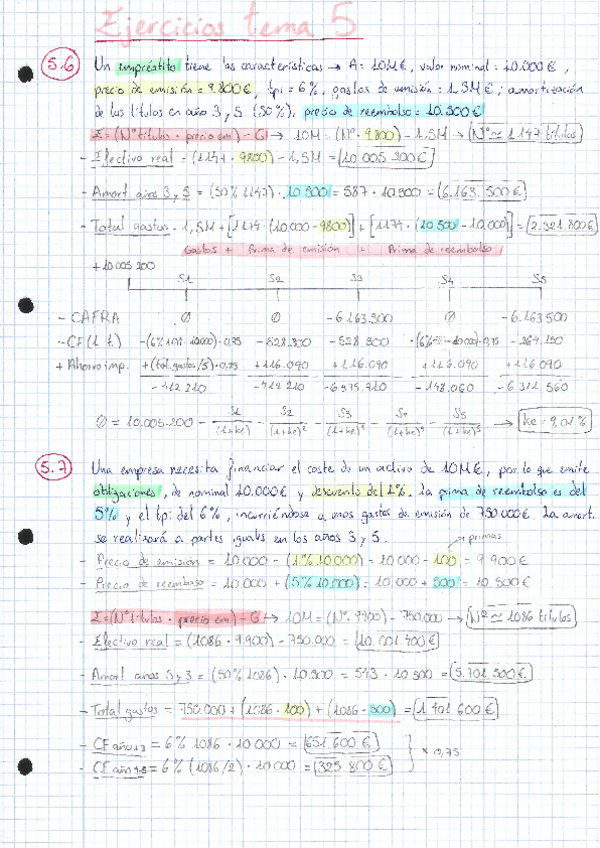 Ejercicios tema 5
5.6 Un empréstito tiene las características → A = 10M€, valor nominal = 10.000€,
precio de emisión = 9.800€, tpi = 6%, gastos de emisión = 1,5M€; amortización
de los títulos en año 3 y 5 (50%), precio de reembolso = 10.500€
Σ = (Nº títulos · precio em) - G → 10M = (Nº · 9800) - 1,5M → Nº ≃ 1174 títulos
- Efectivo real = (1174 · 9800) - 1,5M = 10.005.200€
- Amort años 3 y 5 = (50% 1174) · 10.500 = 587 · 10.500 = 6.163.500€
- Total gastos = 1,5M + [1174 · (10.000 - 9800)] + [1174 · (10.500 - 10.000)] = 2.321.800€
Gastos + Prima de emisión + Prima de reembolso
+10.005.200 S1 S2 S3 S4 S5
- CAFRA ∅ ∅ -6.163.500 ∅ -6.163.500
- CF (1-t) -528.300 -528.300 -264.150
+ Ahorro imp. +(tot. gastos/5) · 0,25 +116.090 +116.090 +116.090 +116.090
-412.210 -412.210 -6.575.710 -148.060 -6.311.560
∅ = 10.005.200 - S1/(1+ke) - S2/(1+ke)² - S3/(1+ke)³ - S4/(1+ke)⁴ - S5/(1+ke)⁵ → ke = 9,01%
5.7 Una empresa necesita financiar el coste de un activo de 10M€, por lo que emite
obligaciones, de nominal 10.000€ y descuento del 1%. La prima de reembolso es del
5% y el tpi del 6%, incurriéndose a unos gastos de emisión de 750.000€. La amort.
se realizará a partes iguales en los años 3 y 5.
→ primas
- Precio de emisión = 10.000 - (1% 10.000) = 10.000 - 100 = 9.900€
- Precio de reembolso = 10.000 + (5% 10.000) = 10.000 + 500 = 10.500€
Σ = (Nº títulos · precio em) - G → 10M = (Nº · 9900) - 750.000 → Nº ≃ 1086 títulos
- Efectivo real = (1086 · 9.900) - 750.000 = 10.001.400€
- Amort años 5 y 3 = (50% 1086) · 10.500 = 543 · 10.500 = 5.701.500€
- Total gastos = 750.000 + (1086 · 100) + (1086 · 500) = 1.401.600€
- CF año 1-3 = 6% 1086 · 10.000 = 651.600€
- CF año 4-5 = 6% (1086/2) · 10.000 = 325.800€ } × 0,75